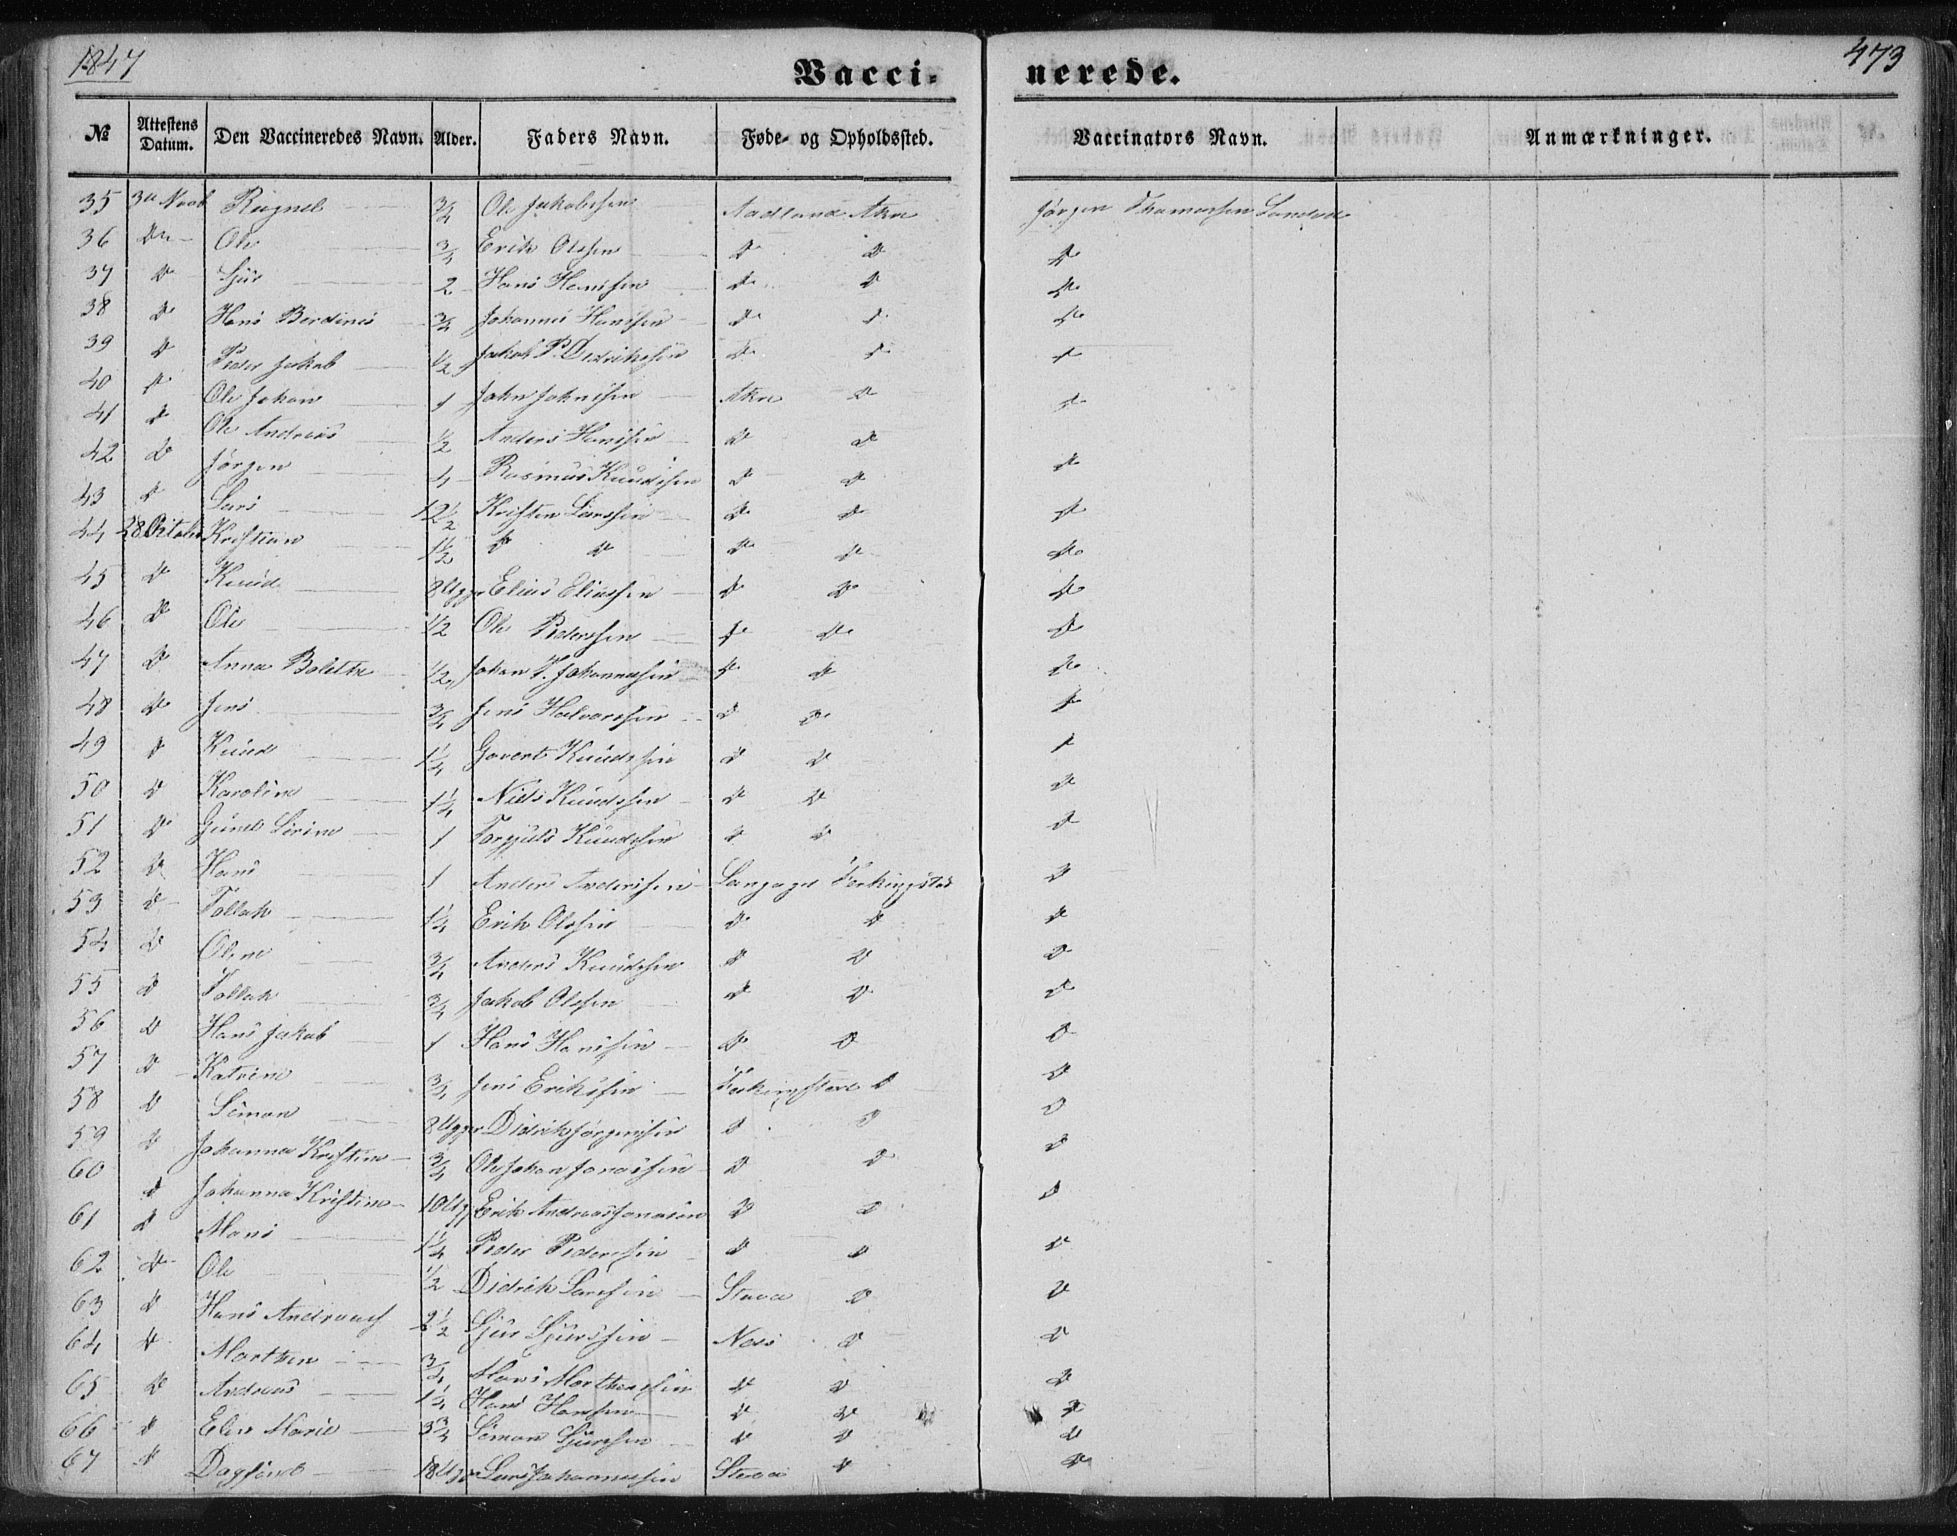 1847 Vacci- nerede. 473
№ Attestens Datum. Den Vaccineredes Navn. Alder. Faders Navn. Føde- og Opholdssted. Vaccinators Navn. Anmærkninger.
35 Ragnel 3/4 Ole Jakobsen Aadland Akre Jørgen Thomassen
36 Do Ole 3/4 Erik Olssen Do Do Do
37 Do Sjur 2 Hans Hanssen Do Do Do
38 Do Hans Berdines 3/4 Johannes Hanssen Do Do Do
39 Do Peder Jakob 1/2 Jakob P. Didrikssen Do Do Do
40 Do Ole Johan 1 John Johnssen Akre Do Do
41 Do Ole Andreas 1/2 Anders Hanssen Do Do
42 Do Jørgen 4 Rasmus Knudssen Do Do Do
43 Do Lars 12 1/2 Kristen Larssen Do Do Do
44 28 October Kristian 1 1/2 Do Do Do Do Do
45 Do Knud 8 Uger Elias Eliassen Do Do Do
46 Do Ole 1/2 Ole Pederssen Do Do Do
47 Do Anna Bolette 1/2 Johan Johannessen Do Do Do
48 Do Jens 3/4 Jens Halvorssen Do Do Do
49 Do Knud 1 1/4 Govert Knudssen Do Do Do
50 Do Karoline 1 1/4 Niels Knudssen Do Do Do
51 Do Gunel Serine 1 Torgjuls Knudssen Do Do Do
52 Do Hans 1 Anders Anderssen Langager Ferkingstad Do
53 Do Tollak 1 1/4 Erik Olssen Do Do Do
54 Do Olene 3/4 Anders Knudssen Do Do Do
55 Do Tollak 3/4 Jakob Olssen Do Do Do
56 Do Hans Jakob 1 Hans Hanssen Do Do Do
57 Do Katrine 3/4 Jens Erikssen Ferkingstad Do Do
58 Do Simon 8 Uger Didrik Jørgenssen Do Do Do
59 Do Johanna Kristine 3/4 Ole Johan Jonassen Do Do Do
60 Do Johanna Kristine 10 Ug Erik Andreas Jonassen Do Do Do
61 Do Mons 1 1/4 Peder Pederssen Do Do Do
62 Do Ole 1/2 Didrik Larssen Stava Do Do
63 Do Hans Andreas 2 1/2 Sjur Sjurssen Nes Do Do
64 Do Marthen 3/4 Mons Marthenssen Do Do Do
65 Do Andreas 1 1/4 Hans Hanssen Do Do Do
66 Do Elen Marie 3 3/4 Simon Sjurssen Do Do Do
67 Do Dagfind 18 Uger Lars Johannessen Stava Do Do